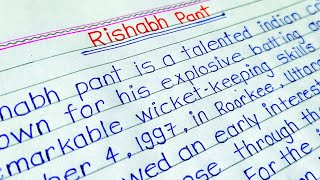 Rishabh Pant
habh pant is a talented indian
own for his explosive batting
emarkable wicket-keeping skills
ber 4, 1997, in Roorkee,
wed an early interest
through
For the